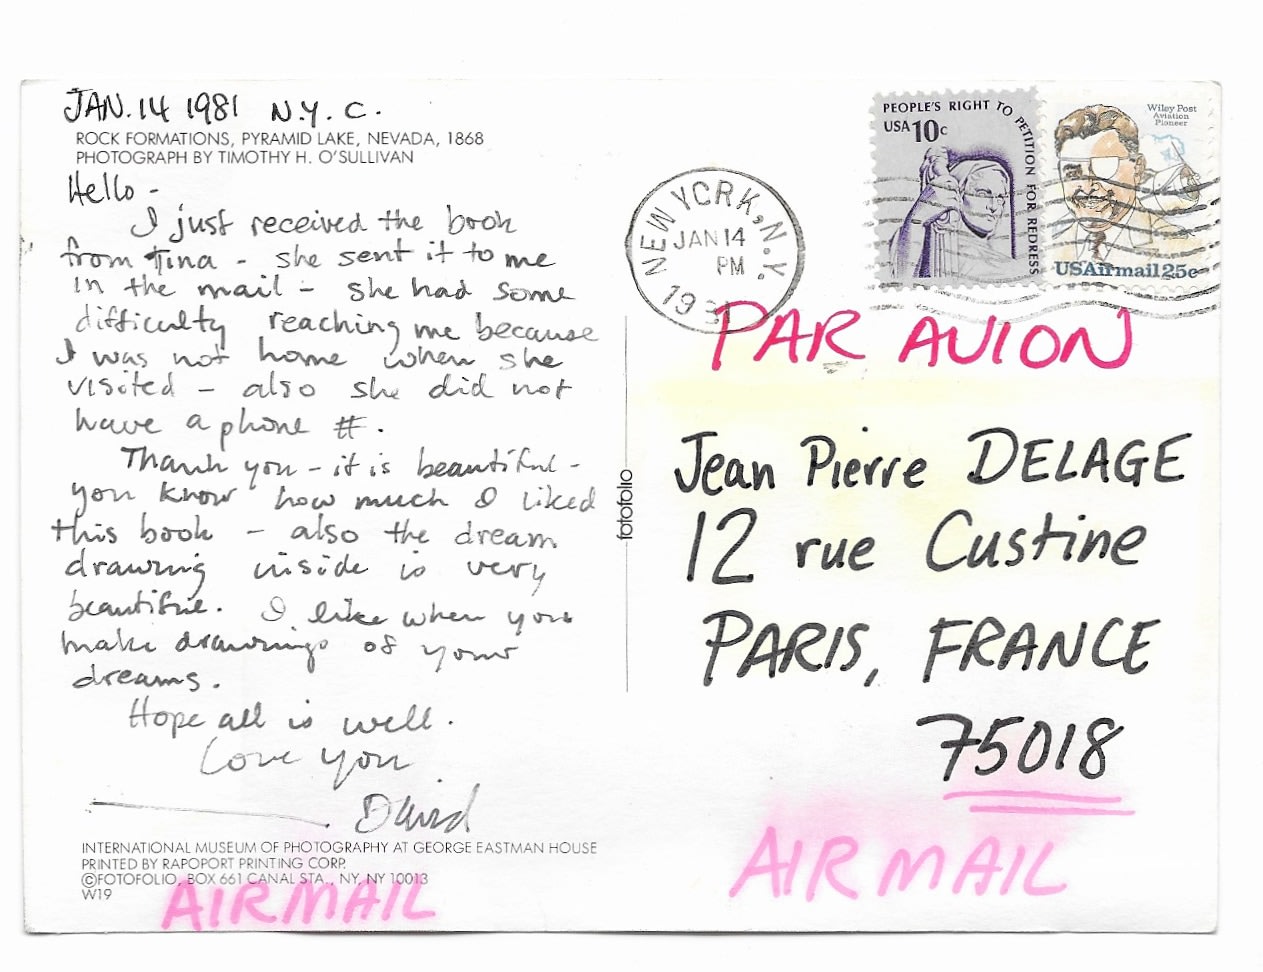 JAN.14 1981 N.Y.C.
ROCK FORMATIONS, PYRAMID LAKE, NEVADA, 1868
PHOTOGRAPH BY TIMOTHY H. O'SULLIVAN
Hello -
I just received the book
from Tina - she sent it to me
in the mail - she had some
difficulty reaching me because
I was not home when she
visited - also she did not
have a phone #.
Thank you - it is beautiful -
you know how much I liked
this book - also the dream
drawing inside is very
beautiful. I like when you
make drawings of your
dreams.
Hope all is well.
Love you
David
INTERNATIONAL MUSEUM OF PHOTOGRAPHY AT GEORGE EASTMAN HOUSE
PRINTED BY RAPOPORT PRINTING CORP.
©FOTOFOLIO, BOX 661 CANAL STA., NY, NY 10013
W19
AIRMAIL
fotofolio
NEW YORK, N.Y.
JAN 14
PM
1981
PEOPLE'S RIGHT TO PETITION FOR REDRESS
USA 10c
Wiley Post
Aviation
Pioneer
USAirmail 25c
PAR AVION
Jean Pierre DELAGE
12 rue Custine
PARIS, FRANCE
75018
AIRMAIL